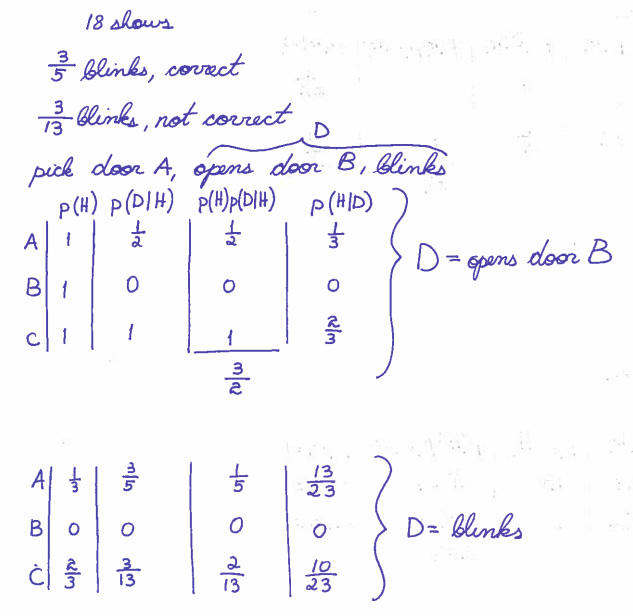 18 shows
3/5 blinks, correct
3/13 blinks, not correct
D
pick door A, opens door B, blinks
p(H) p(D|H) p(H)p(D|H) p(H|D)
A 1 1/2 1/2 1/3
B 1 0 0 0
C 1 1 1 2/3
3/2
D = opens door B
A 1/3 3/5 1/5 13/23
B 0 0 0 0
C 2/3 3/13 2/13 10/23
D = blinks